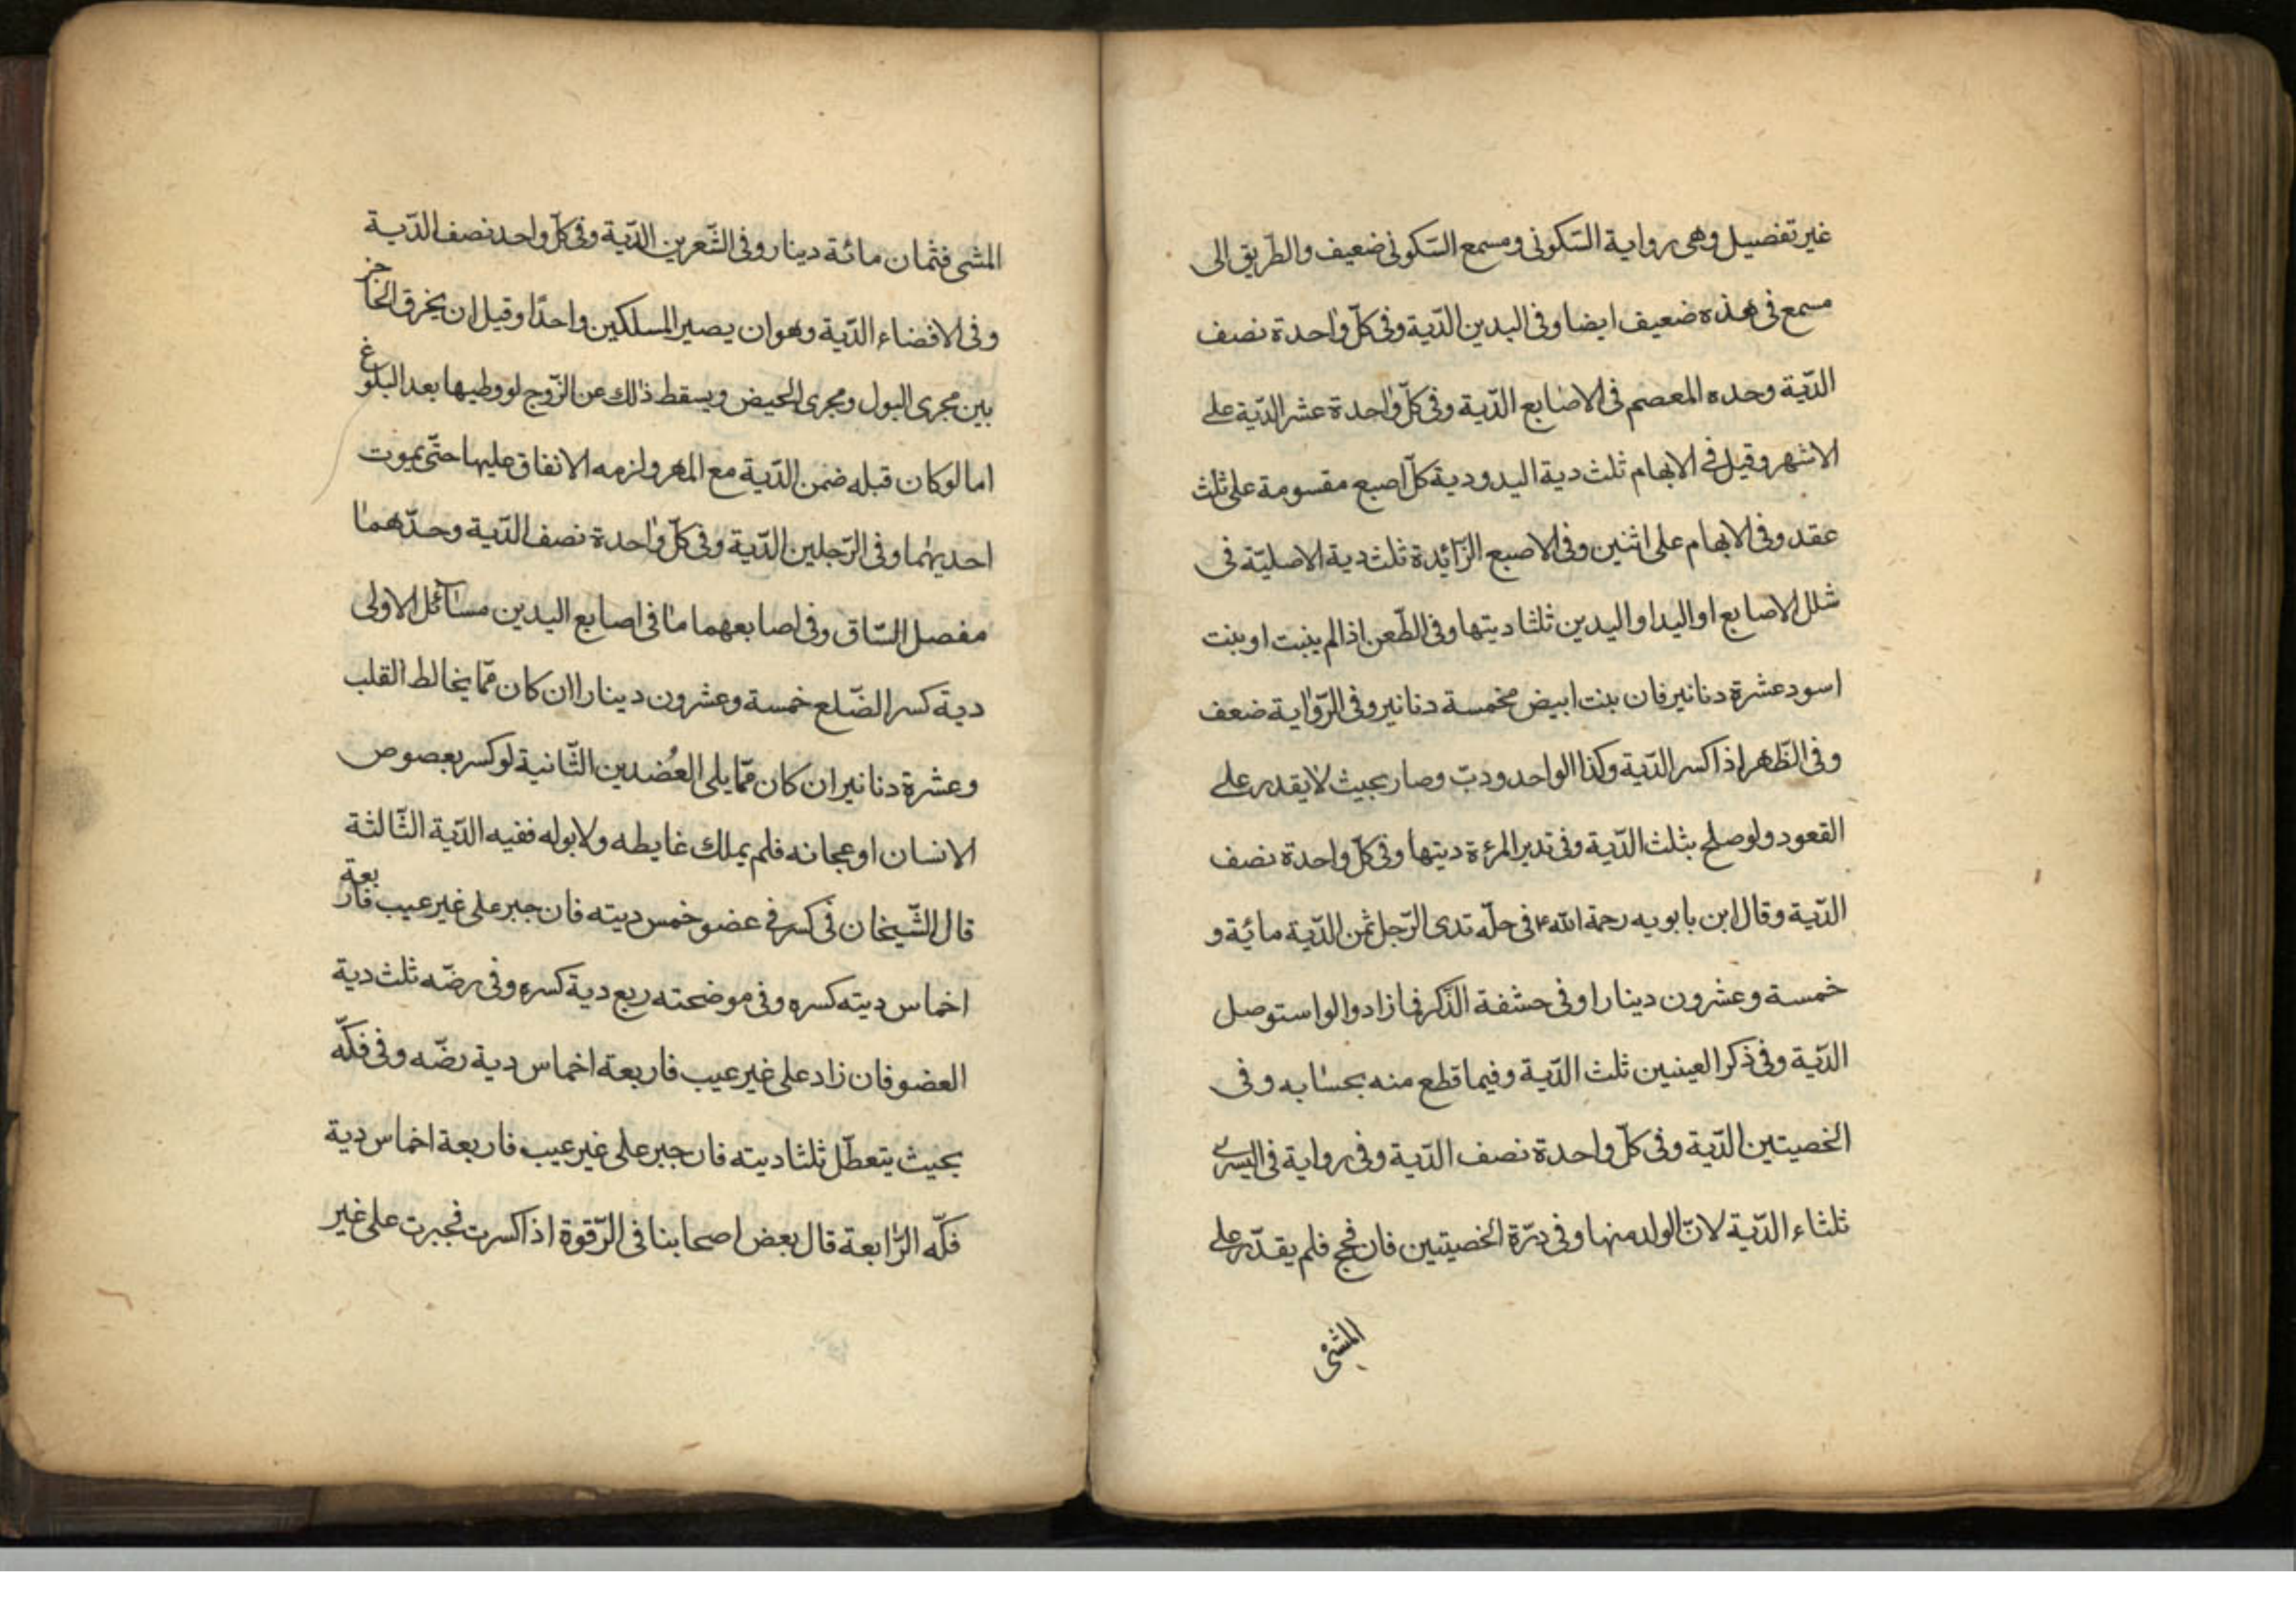 غير تفصيل وهى رواية السّكونى ومسمع السّكونى ضعيف والطّريق الى
مسمع فى هذه ضعيف ايضا وفى اليدين الدّية وفى كلّ واحدة نصف
الدّية وحده المعصم فى الاصابع الدّية وفى كلّ واحدة عشر الدّية على
الاشهر وقيل فى الابهام ثلث دية اليد ودية كلّ اصبع مقسومة على ثلث
عقد وفى الابهام على اثنين وفى الاصبع الزّائدة ثلث دية الاصليّة فى
شلل الاصابع او اليد او اليدين ثلثا ديتها وفى الطّعن اذا لم ينبت او بنت
اسود عشرة دنانير فان بنت ابيض مخمسة دنانير وفى الرّواية ضعف
وفى الظّهر اذا كسر الدّية وكذا الواحدودبّ وصار بحيث لا يقدر على
القعود ولو صلح بثلث الدّية وفى تدير المرءة ديتها وفى كلّ واحدة نصف
الدّية وقال ابن بابويه رحمة الله ع فى حلّه تدى الرّجل ثمن الدّية مائة و
خمسة وعشرون دينارا وفى حشفة الذّكر فما زاد والو استوصل
الدّية وفى ذكر العينين ثلث الدّية وفيما قطع منه بحسابه وفى
الخصيتين الدّية وفى كلّ واحدة نصف الدّية وفى رواية فى اليسرى
ثلثاء الدّية لانّ الولد منها وفى درّة الخصيتين فان فحج فلم يقدّر على
المشى
المشى فثمان مائة دينار وفى الشّعرين الدّية وفى كلّ واحد نصف الدّية
وفى الافضاء الدّية وهو ان يصير المسلكين واحدًا وقيل ان يخرق الحاجز
بين مجرى البول ومجرى الحيض ويسقط ذلك عن الزّوج لو وطيها بعد البلوغ
اما لو كان قبله ضمن الدّية مع المهر ولزمه الانفاق عليها حتّى يموت
احديهما وفى الرّجلين الدّية وفى كلّ واحدة نصف الدّية وحدّهما
مفصل السّاق وفى اصابعهما ما فى اصابع اليدين مسائل الاولى
دية كسر الضّلع خمسة وعشرون دينارا ان كان ممّا يخالط القلب
وعشرة دنانير ان كان ممّا يلى العضدين الثّانية لو كسر بعصوص
الانسان او عجانه فلم يملك غايطه ولا بوله ففيه الدّية الثّالثة
قال الشّيخان فى كسر فى عضو خمس ديته فان جبر على غير عيب فاربعة
اخماس ديته كسره وفى موضحته ربع دية كسره وفى رضّه ثلث دية
العضو فان زاد على غير عيب فاربعة اخماس دية رضّه وفى فكّه
بحيث يتعطّل ثلثا ديته فان جبر على غير عيب فاربعة اخماس دية
فكّه الرّابعة قال بعض اصحابنا فى الرّقوة اذا كسرت فجبرت على غير